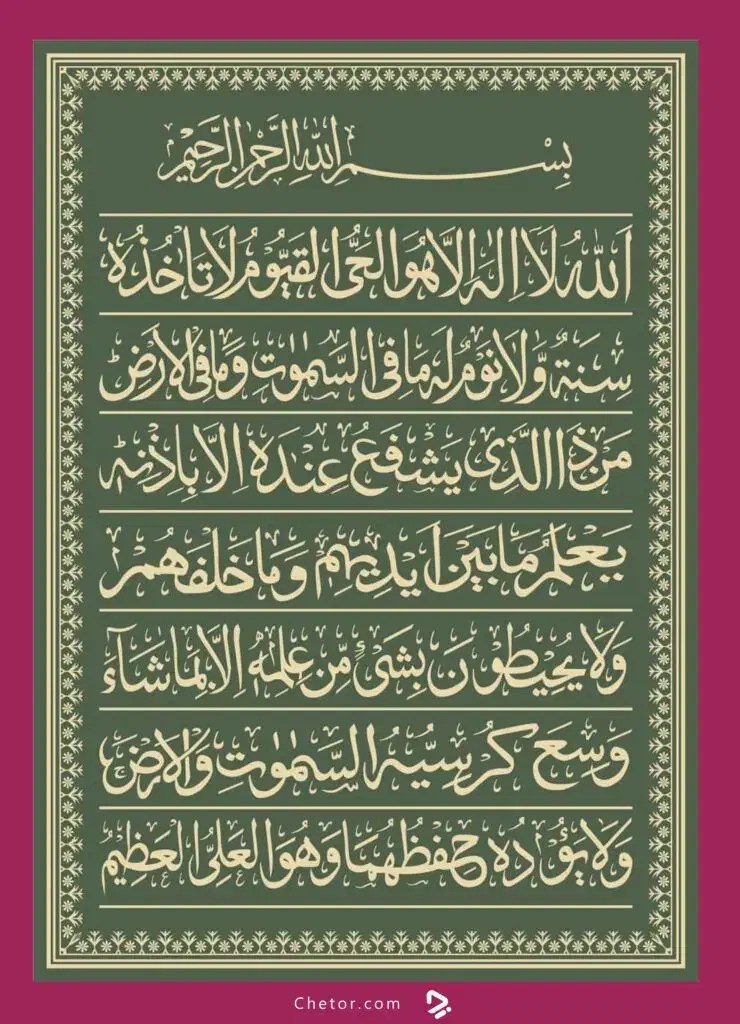 بِسْمِ اللّٰهِ الرَّحْمٰنِ الرَّحِيْمِ
اَللّٰهُ لَاۤ اِلٰهَ اِلَّا هُوَ الْحَىُّ الْقَيُّوْمُ لَا تَاْخُذُهٗ
سِنَةٌ وَّلَا نَوْمٌ لَهٗ مَا فِى السَّمٰوٰتِ وَمَا فِى الْاَرْضِؕ
مَنْ ذَا الَّذِىْ يَشْفَعُ عِنْدَهٗ اِلَّا بِاِذْنِهٖؕ
يَعْلَمُ مَا بَيْنَ اَيْدِيْهِمْ وَمَا خَلْفَهُمْ
وَلَا يُحِيْطُوْنَ بِشَىْءٍ مِّنْ عِلْمِهٖۤ اِلَّا بِمَا شَآءَ
وَسِعَ كُرْسِيُّهُ السَّمٰوٰتِ وَالْاَرْضَ
وَلَا يَئُوْدُهٗ حِفْظُهُمَا وَهُوَ الْعَلِىُّ الْعَظِيْمُ
Chetor.com